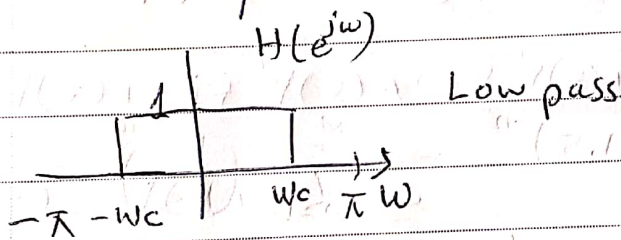 H(e^jω)
1
Low pass
-π -Wc Wc π W